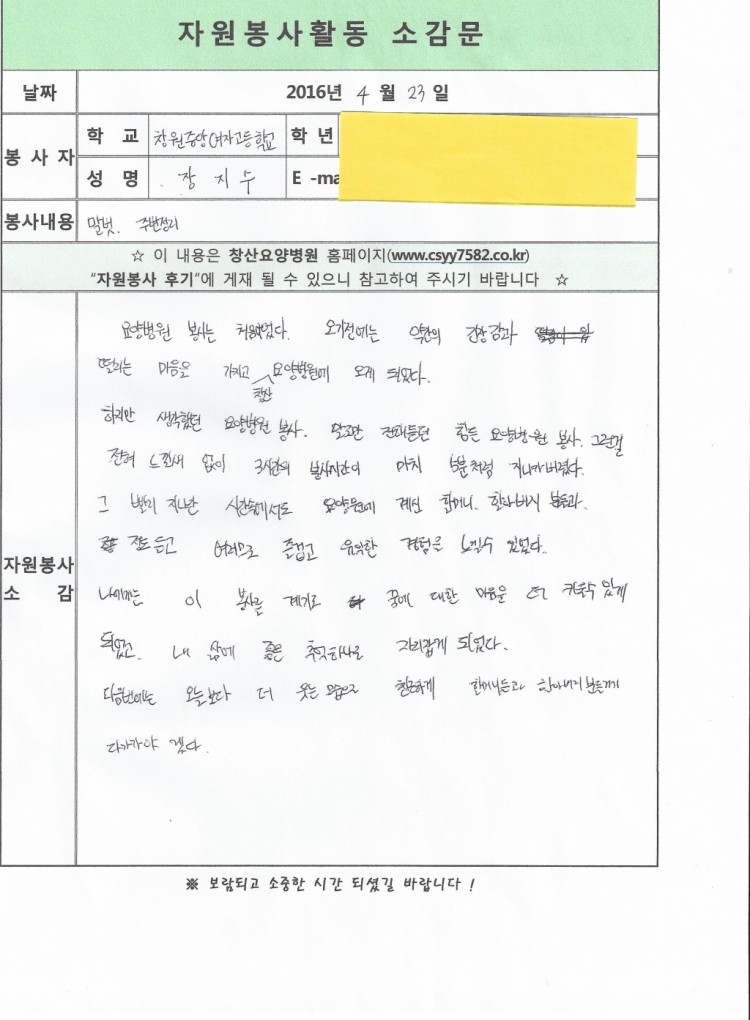 자원봉사활동 소감문
날짜 2016년 4 월 23 일
봉사자 학 교 창원중앙여자고등학교 학 년
성 명 장 지 수 E -ma
봉사내용 말벗. 주변정리
☆ 이 내용은 창산요양병원 홈페이지(www.csyy7582.co.kr)
"자원봉사 후기"에 게재 될 수 있으니 참고하여 주시기 바랍니다 ☆
자원봉사
소 감
요양병원 봉사는 처음이었다. 오기전에는 약간의 긴장감과
떨리는 마음을 가지고 창산 요양병원에 오게 되었다.
하지만 생각했던 요양병원 봉사. 말로만 전해듣던 힘든 요양병원 봉사. 그런걸
전혀 느낄새 없이 3시간의 봉사시간이 마치 5분처럼 지나가버렸다.
그 빨리 지나간 시간속에서도 요양원에 계신 할머니. 할아버지 분들과.
정도 들고 여러모로 즐겁고 유익한 경험을 느낄수 있었다.
나에게는 이 봉사를 계기로 꿈에 대한 마음을 더 키울수 있게
되었고. 내 삶에 좋은 추억하나로 자리잡게 되었다.
다음번에는 오늘보다 더 웃는 모습으로 친근하게 할머니들과 할아버지 분들께
다가가야 겠다.
※ 보람되고 소중한 시간 되셨길 바랍니다 !